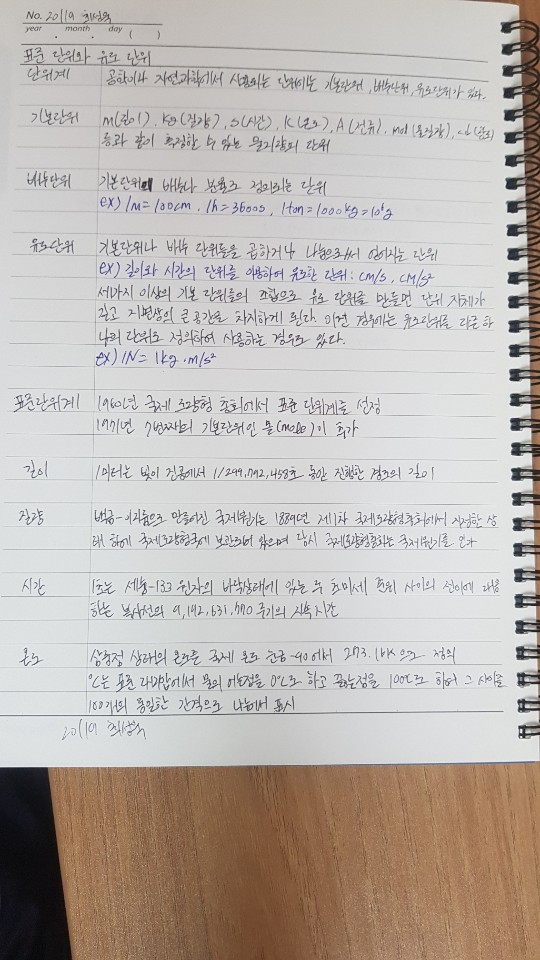 No. 20119 최성욱
year . month . day ( )
표준 단위와 유도 단위
단위계 공학이나 자연과학에서 사용되는 단위에는 기본단위, 배수단위, 유도단위가 있다.
기본단위 m(길이), kg(질량), s(시간), K(온도), A(전류), mol(물질량), cd(광도)
등과 같이 측정할 수 있는 물리량의 단위
배수단위 기본단위 배수나 분율로 정의되는 단위
ex) 1m=100cm, 1h=3600s, 1ton=1000kg=10⁶g
유도단위 기본단위나 배수 단위들을 곱하거나 나눔으로써 얻어지는 단위
ex) 길이와 시간의 단위를 이용하여 유도한 단위: cm/s, cm/s²
세가지 이상의 기본 단위들의 조합으로 유도 단위를 만들면 단위 자체가
길고 지면상의 큰 공간을 차지하게 된다. 이런 경우에는 유도단위를 다른 하
나의 단위로 정의하여 사용하는 경우도 있다.
ex) 1N= 1kg·m/s²
표준단위계 1960년 국제 도량형 총회에서 표준 단위계를 설정
1971년 7번째의 기본단위인 몰(mole)이 추가
길이 1미터는 빛이 진공에서 1/299,792,458초 동안 진행한 경로의 길이
질량 백금-이리듐으로 만들어진 국제원기는 1889년 제1차 국제도량형총회에서 지정한 상
태 하에 국제도량형국에 보관되어 있으며 당시 국제도량형총회는 국제원기를 인가
시간 1초는 세슘-133 원자의 바닥상태에 있는 두 초미세 준위 사이의 전이에 대응
하는 복사선의 9,192,631,770 주기의 지속 시간
온도 삼중점 상태의 온도를 국제 온도 눈금-90에서 273.16K으로 정의
℃는 표준 대기압에서 물의 어는점을 0℃로 하고 끓는점을 100℃로 하여 그 사이를
100개의 동일한 간격으로 나눠서 표시
20119 최성욱